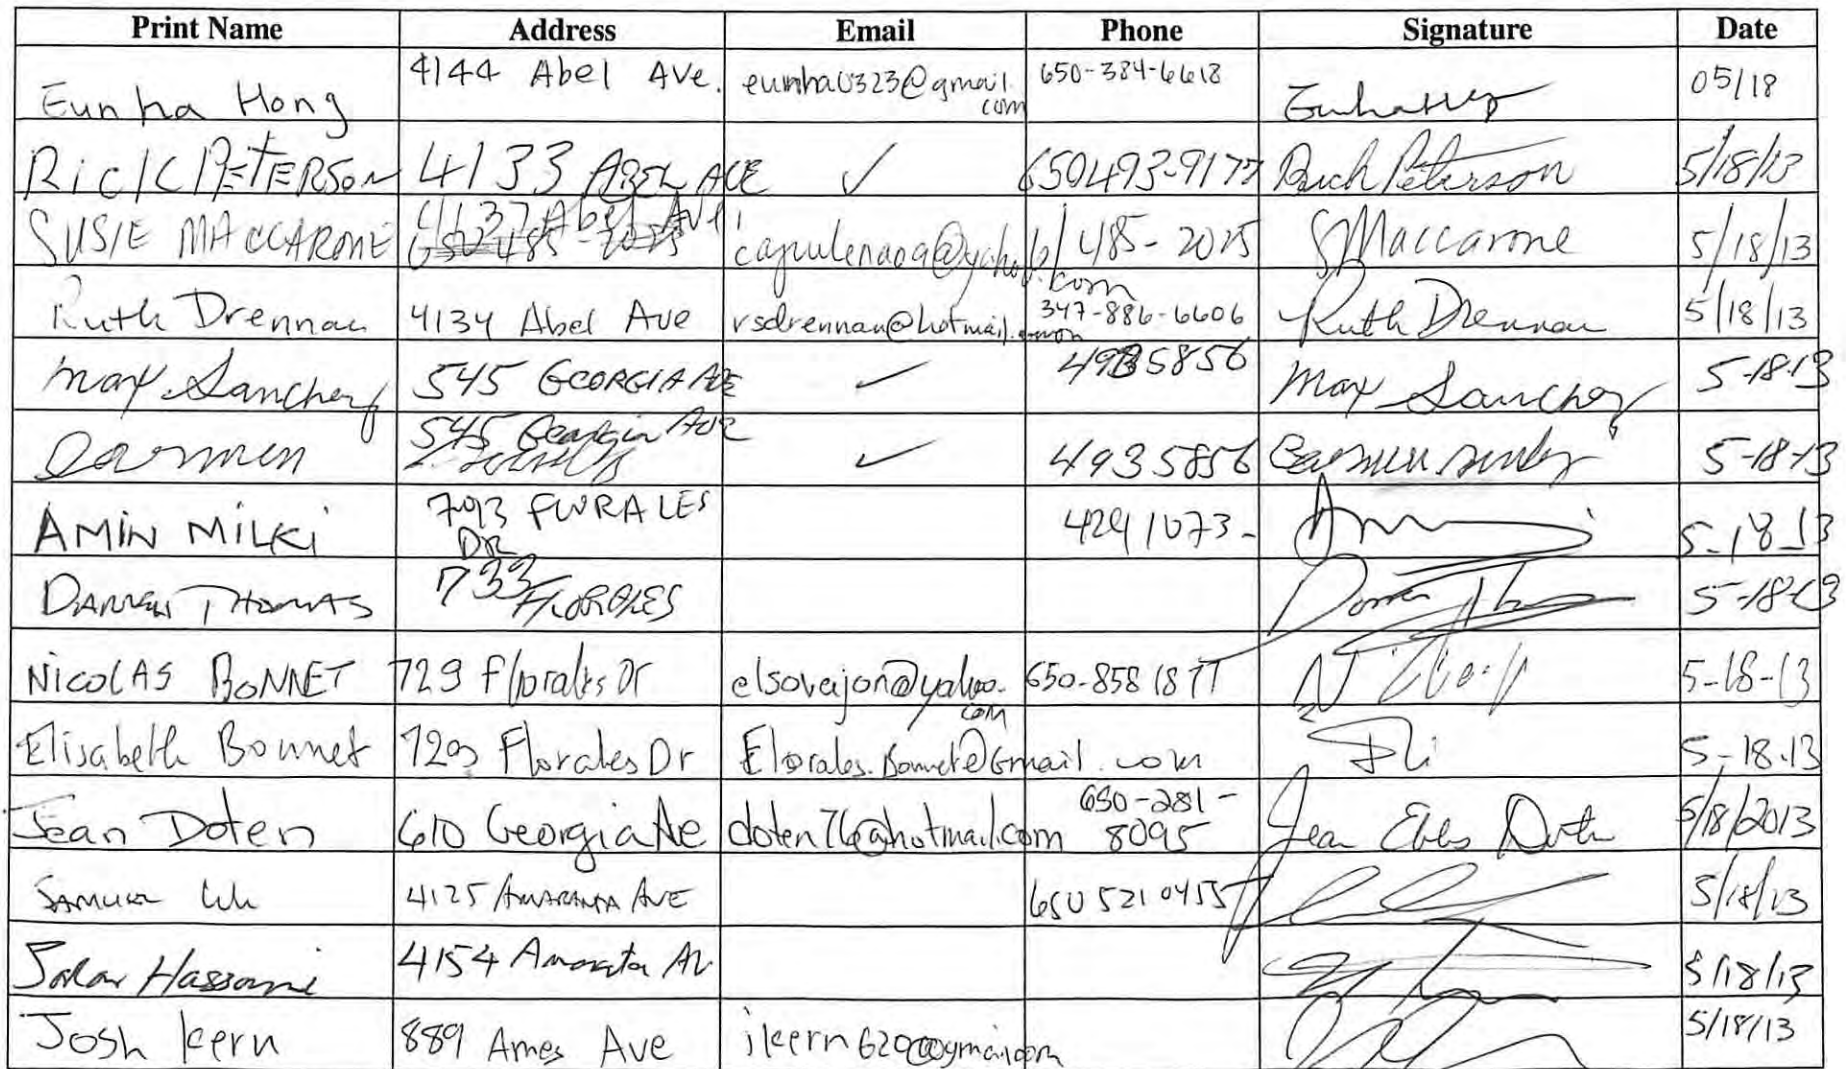 Print Name Address Email Phone Signature Date
Eunha Hong 4144 Abel Ave. eunha0323@gmail.com 650-384-6618 05/18
RICK PETERSON 4133 ABEL AVE ✓ 650493-9177 Rick Peterson 5/18/13
SUSIE MACCARONE 4137 Abel Ave 485-2025 S Maccarone 5/18/13
Ruth Drennan 4134 Abel Ave rsdrennan@hotmail. 347-886-6606 Ruth Drennan 5/18/13
Max Sanchez 545 GEORGIA AVE ✓ 4935856 Max Sanchez 5-18-13
Carmen 545 Georgia Ave ✓ 4935856 Carmen 5-18-13
AMIN MILKI DR 5-18-13
DARREN THOMAS 733 FLORALES 5-18-13
NICOLAS BONNET 729 Florales Dr 650-858 1877 5-18-13
Elisabeth Bonnet 729 Florales Dr Florales.Bonnet@Gmail.com 5-18.13
Jean Doten 610 Georgia Ave doten76@hotmail.com 650-281-8095 Jean Doten 5/18/2013
SAMUEL 4125 AMARANTA AVE 650 521 0455 5/18/13
Hassani 4154 Amaranta Av 5/18/13
Josh Kern 889 Ames Ave jkern620@gmail.com 5/18/13